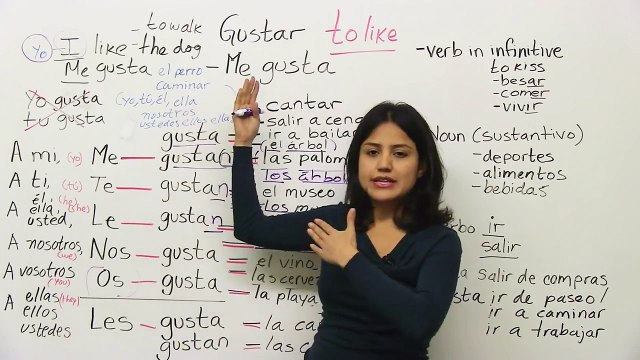 - to walk
Gustar to like
Yo - I like - the dog
Me gusta el perro - Me gusta
caminar
Yo gusta
tú gusta
(yo, tú, él, ella
nosotros
ustedes ellas ella)
- verb in infinitive
to kiss
- besar
- comer
- vivir
- cantar
- salir a cena
gusta = ir a baila
(el árbol)
A mi, (yo) Me — gustan = las palom
los árbol
A ti, (tú) Te — gustan el museo
A él (he)
ella, (she)
usted, Le — gustan = los mu
A nosotros (we) Nos — gusta = el vino
las cerve
A vosotros (you) Os — gusta = la playa
A ellas (they)
ellos
ustedes Les — gusta = la ca
gustan = las c
Noun (sustantivo)
- deportes
- alimentos
- bebidas
rbo ir
salir
a salir de compras
sta ir de paseo/
ir a caminar
ir a trabajar